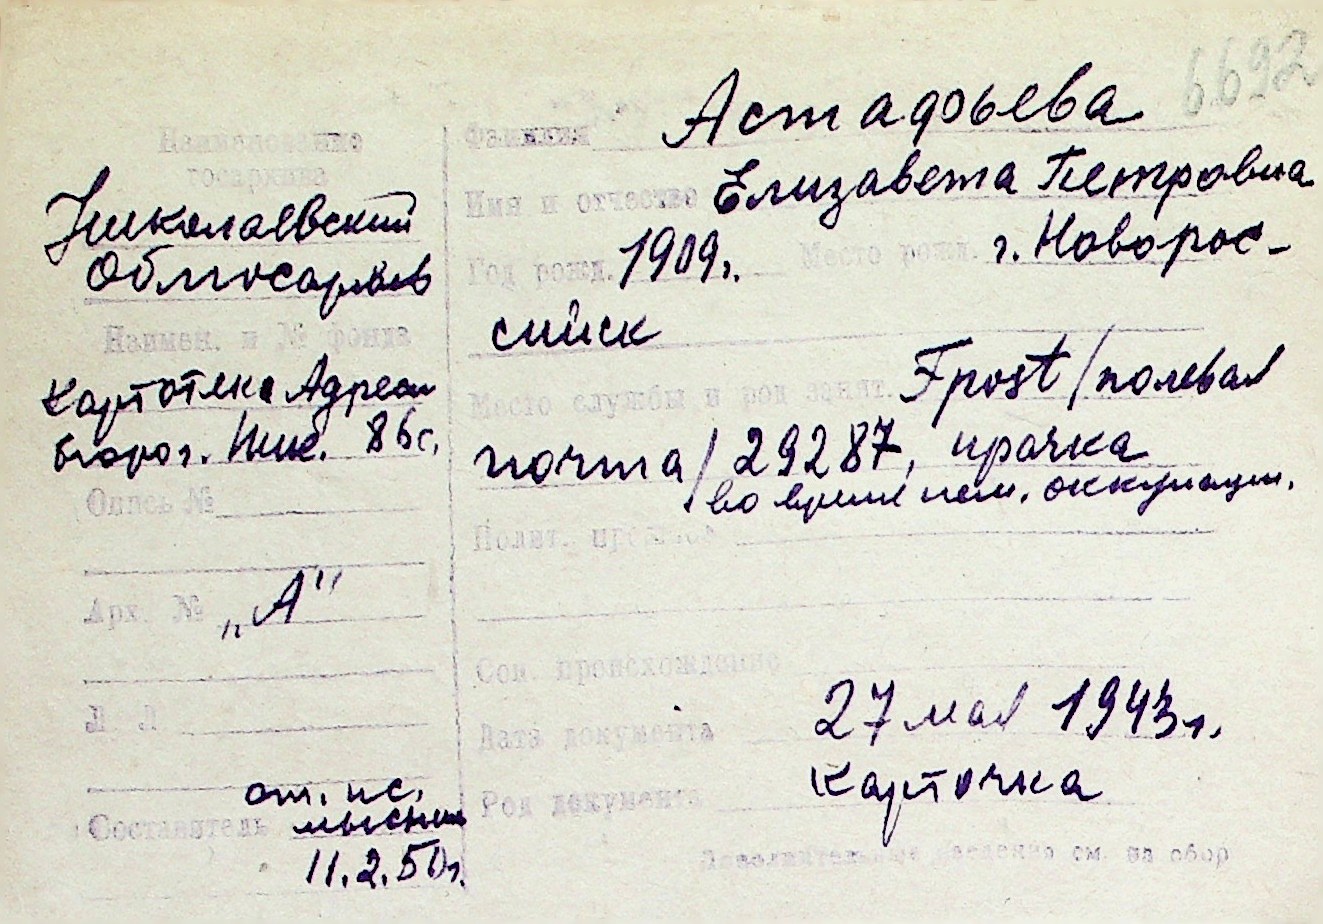 6692
Фамилия Астафьева
Имя и отчество Елизавета Петровна
Год рожд. 1909г. Место рожд. г. Новорос-
сийск
Место службы и род занят. Fpost/полевая
почта/ 29287, прачка
во время нем. оккупации.
Полит.
Соц. происхождение
Дата документа 27 мая 1943г.
Род документа Карточка
Дополнительные сведения см. на обор
Наименование
госархива
Николаевский
Облгосархив
Наимен. и № фонда
Картотека Адресн
бюро г. Ник. 86с.
Опись №
Арх. № „А"
Л Л
Составитель
11.2.50г.